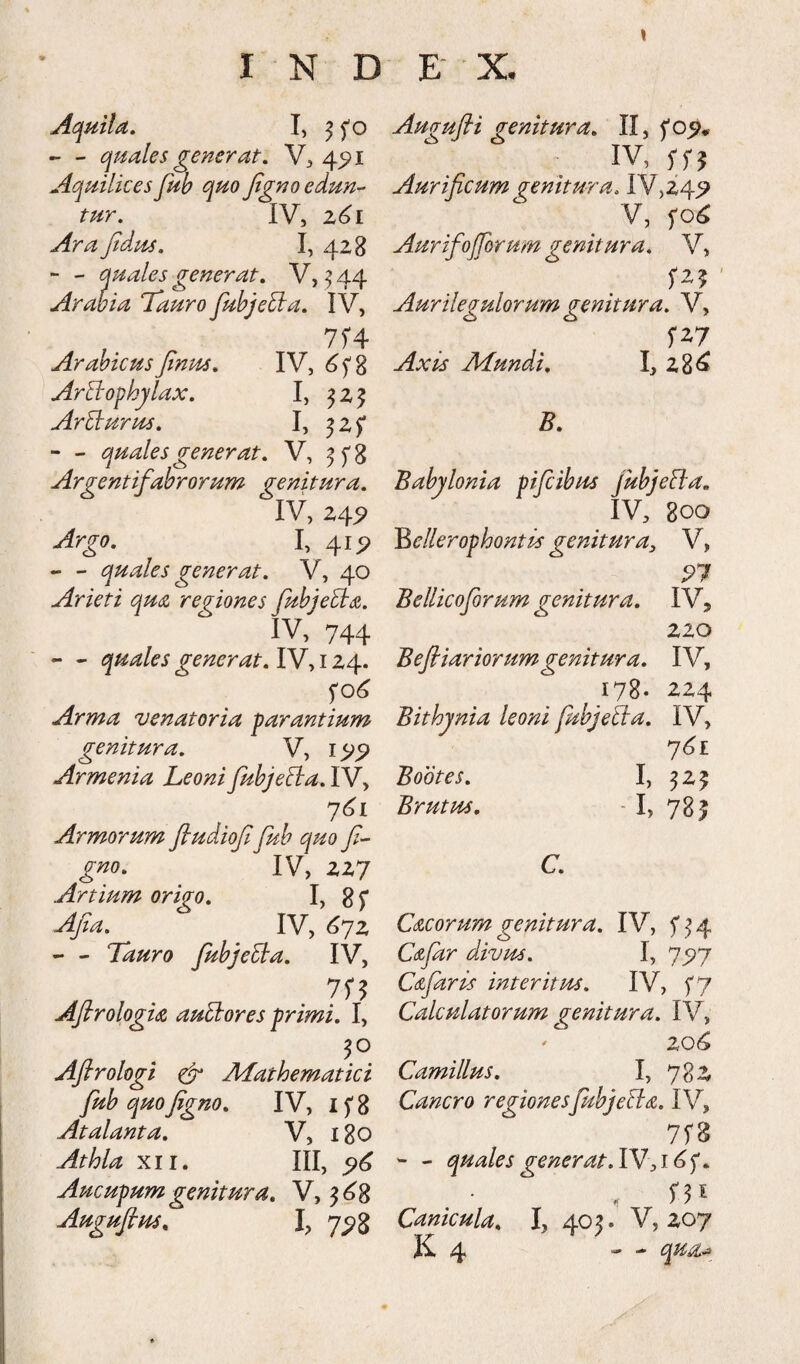 INDEX.
Aquila. I, 350
- - quales generat. V, 491
Aquilices ſub quo ſigno edun-
tur. IV, 261
Ara ſidus. I, 428
- - quales generat. V, 344
Arabia Tauro ſubjecta. IV,
754
Arabicus ſinus. IV, 658
Arctophylax. I, 323
Arcturus. I, 325
- - quales generat. V, 358
Argentifabrorum genitura.
IV, 249
Argo. I, 419
- - quales generat. V, 40
Arieti quæ regiones ſubjectæ.
IV, 744
- - quales generat. IV, 124.
506
Arma venatoria parantium
genitura. V, 199
Armenia Leoni ſubjecta. IV,
761
Armorum ſtudioſi ſub quo ſi-
gno. IV, 227
Artium origo. I, 85
Aſia. IV, 672
- - Tauro ſubjecta. IV,
753
Aſtrologiæ auctores primi. I,
30
Aſtrologi & Mathematici
ſub quo ſigno. IV, 158
Atalanta. V, 180
Athla XII. III, 96
Aucupum genitura. V, 368
Auguſtus. I, 798
Auguſti genitura. II, 509.
IV, 553
Aurificum genitura. IV, 249
V, 506
Aurifoſſorum genitura. V,
523
Aurilegulorum genitura. V,
527
Axis Mundi. I, 286
B.
Babylonia piſcibus ſubjecta.
IV, 800
Bellerophontis genitura, V,
97
Bellicoſorum genitura. IV,
220
Beſtiariorum genitura. IV,
178. 224
Bithynia leoni ſubjecta. IV,
761
Bootes. I, 323
Brutus. I, 783
C.
Cæcorum genitura. IV, 534
Cæſar divus. I, 797
Cæſaris interitus. IV, 57
Calculatorum genitura. IV,
206
Camillus. I, 782
Cancro regiones ſubjectæ. IV,
758
- - quales generat. IV, 165.
531
Canicula. I, 403. V, 207
K 4 - - quæ-